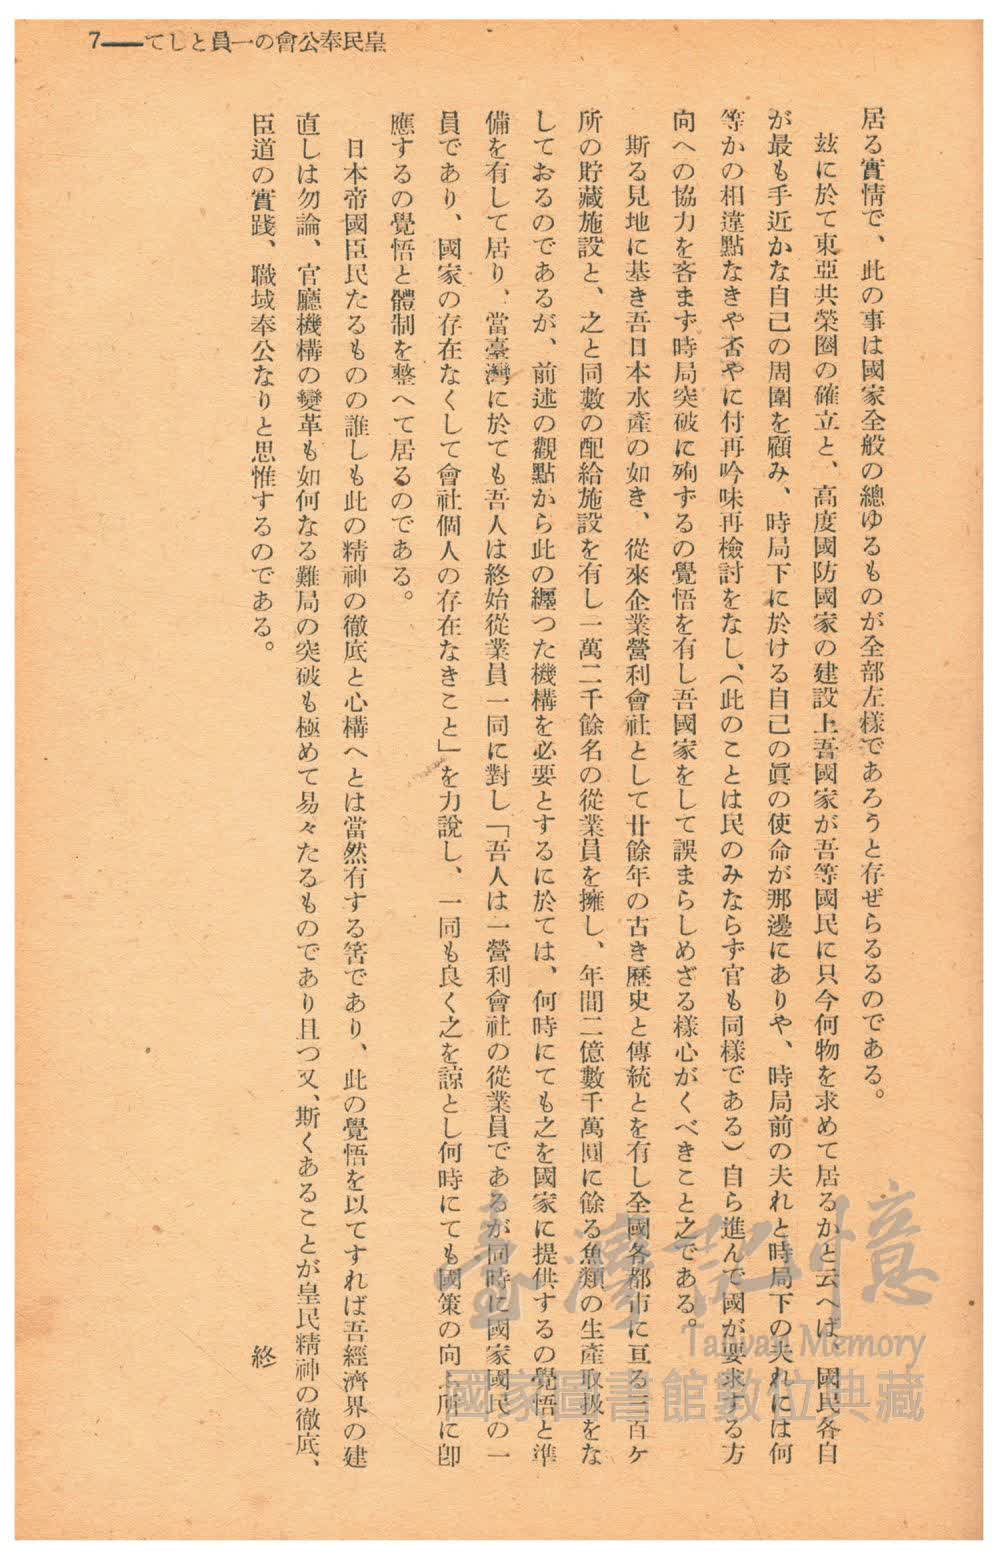 皇民奉公會の一員として――7
居る實情で、此の事は國家全般の總ゆるものが全部左樣であろうと存ぜらるるのである。
玆に於て東亞共榮圈の確立と、高度國防國家の建設上吾國家が吾等國民に只今何物を求めて居るかと云へば、國民各自
が最も手近かな自己の周圍を顧み、時局下に於ける自己の眞の使命が那邊にありや、時局前の夫れと時局下の夫れには何
等かの相違點なきや否やに付再吟味再檢討をなし、(此のことは民のみならず官も同樣である)自ら進んで國が要求する方
向への協力を吝まず時局突破に殉ずるの覺悟を有し吾國家をして誤まらしめざる樣心がくべきこと之である。
斯る見地に基き吾日本水產の如き、從來企業營利會社として廿餘年の古き歷史と傳統とを有し全國各都市に亘る三百ヶ
所の貯藏施設と、之と同數の配給施設を有し一萬二千餘名の從業員を擁し、年間二億數千萬圓に餘る魚類の生產取扱をな
しておるのであるが、前述の觀點から此の纒つた機構を必要とするに於ては、何時にても之を國家に提供するの覺悟と準
備を有して居り、當臺灣に於ても吾人は終始從業員一同に對し「吾人は一營利會社の從業員であるが同時に國家國民の一
員であり、國家の存在なくして會社個人の存在なきこと」を力說し、一同も良く之を諒とし何時にても國策の向ふ所に卽
應するの覺悟と體制を整へて居るのである。
日本帝國臣民たるものの誰しも此の精神の徹底と心構へとは當然有する筈であり、此の覺悟を以てすれば吾經濟界の建
直しは勿論、官廳機構の變革も如何なる難局の突破も極めて易々たるものであり且つ又、斯くあることが皇民精神の徹底、
臣道の實踐、職域奉公なりと思惟するのである。
終
臺灣記憶
Taiwan Memory
國家圖書館數位典藏